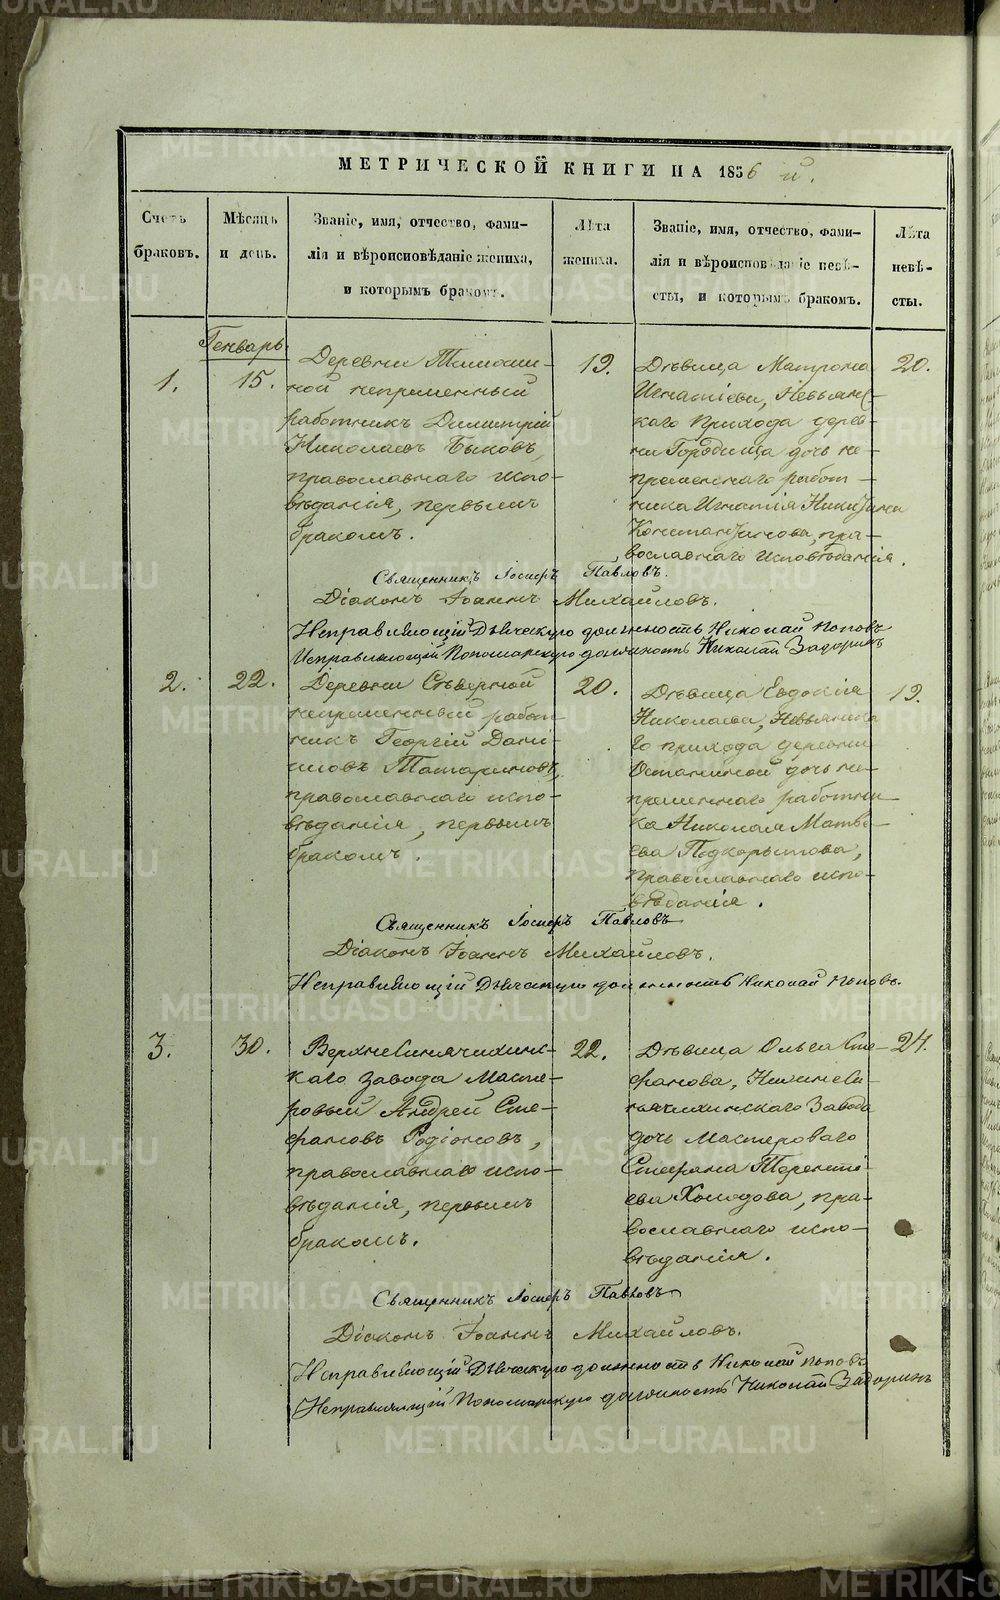 МЕТРИЧЕСКОЙ КНИГИ НА 1856 й.
Счетъ браковъ.
Мѣсяцъ и день.
Званіе, имя, отчество, фами-
лія и вѣроисповѣданіе жениха,
и которымъ бракомъ.
Лѣта жениха.
Званіе, имя, отчество, фами-
лія и вѣроисповѣданіе невѣ-
сты, и которымъ бракомъ.
Лѣта невѣ-
сты.
Генварь
1.
15.
Деревни Тимоши-
ной непременный
работникъ Димитрій
Николаевъ Быковъ,
православнаго испо-
вѣданія, первымъ
бракомъ.
19.
Дѣвица Матрона
Игнатіева, Невьянс-
каго прихода дерев-
ни Городища дочь не-
пременнаго работ-
ника Игнатія Никитина
Константинова, пра-
вославнаго исповѣданія.
20.
Священникъ Іосифъ Павловъ.
Діаконъ Іоаннъ Михайловъ.
Исправляющій Дьяческую должность Николай Поповъ
Исправляющій Пономарскую должность Николай Задоринъ
2.
22.
Деревни Сѣверной
непременный работ-
никъ Георгій Дани-
ловъ Татариновъ,
православнаго испо-
вѣданія, первымъ
бракомъ.
20.
Дѣвица Евдокія
Николаева, Невьянска
го прихода деревни
Останиной дочь не-
пременнаго работни-
ка Николая Матве-
ева Подкорытова,
православнаго испо-
вѣданія.
19.
Священникъ Іосифъ Павловъ
Діаконъ Іоаннъ Михайловъ.
Исправляющій Дьяческую должность Николай Поповъ.
3.
30.
Верхнесинячихинс-
каго завода Масте-
ровый Андрей Сте-
фановъ Родіоновъ,
православнаго испо-
вѣданія, первымъ
бракомъ.
22.
Дѣвица Ольга Сте-
фанова, Нижнеси-
нячихинскаго Завода
дочь Мастероваго
Стефана Терентi-
ева Холодова, пра-
вославнаго испо-
вѣданія.
24.
Священникъ Іосифъ Павловъ
Діаконъ Іоаннъ Михайловъ.
Исправляющій Дьяческую должность Николай Поповъ
Исправляющій Пономарскую должность Николай Задоринъ
METRIKI.GASO-URAL.RU